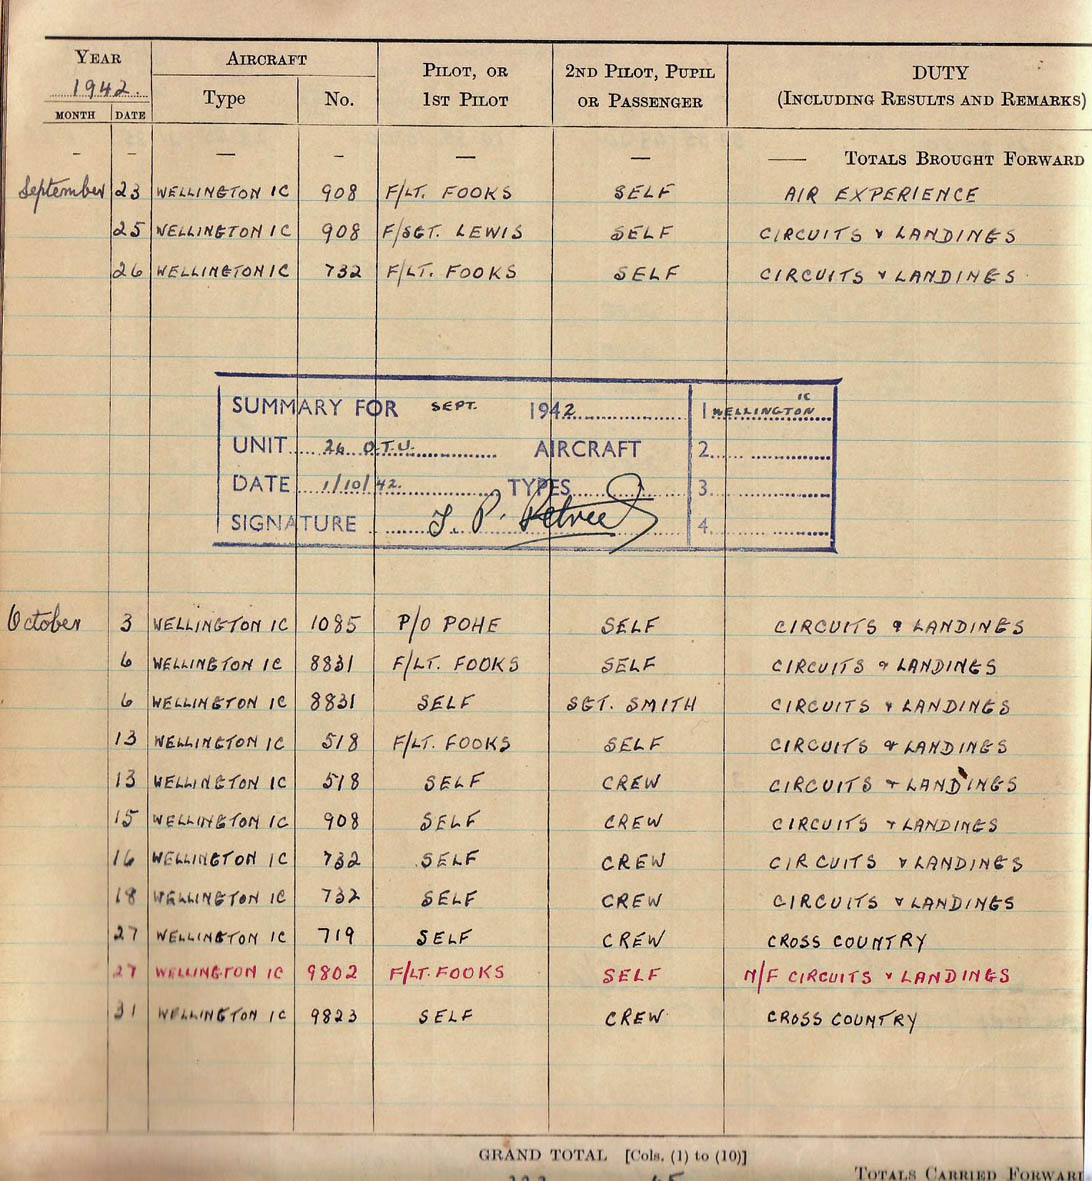 YEAR AIRCRAFT PILOT, OR 2ND PILOT, PUPIL DUTY
1942. Type No. 1ST PILOT OR PASSENGER (INCLUDING RESULTS AND REMARKS)
MONTH DATE
— — — — — — — TOTALS BROUGHT FORWARD
September 23 WELLINGTON IC 908 F/LT. FOOKS SELF AIR EXPERIENCE
25 WELLINGTON IC 908 F/SGT. LEWIS SELF CIRCUITS & LANDINGS
26 WELLINGTON IC 732 F/LT. FOOKS SELF CIRCUITS & LANDINGS
SUMMARY FOR SEPT. 1942 1 WELLINGTON IC
UNIT 26 O.T.U. AIRCRAFT 2
DATE 1/10/42. TYPES 3
SIGNATURE 4
October 3 WELLINGTON IC 1085 P/O POHE SELF CIRCUITS & LANDINGS
6 WELLINGTON IC 8831 F/LT. FOOKS SELF CIRCUITS & LANDINGS
6 WELLINGTON IC 8831 SELF SGT. SMITH CIRCUITS & LANDINGS
13 WELLINGTON IC 518 F/LT. FOOKS SELF CIRCUITS & LANDINGS
13 WELLINGTON IC 518 SELF CREW CIRCUITS & LANDINGS
15 WELLINGTON IC 908 SELF CREW CIRCUITS & LANDINGS
16 WELLINGTON IC 732 SELF CREW CIRCUITS & LANDINGS
18 WELLINGTON IC 732 SELF CREW CIRCUITS & LANDINGS
27 WELLINGTON IC 719 SELF CREW CROSS COUNTRY
27 WELLINGTON IC 9802 F/LT. FOOKS SELF N/F CIRCUITS & LANDINGS
31 WELLINGTON IC 9823 SELF CREW CROSS COUNTRY
GRAND TOTAL [Cols. (1) to (10)]
TOTALS CARRIED FORWARD